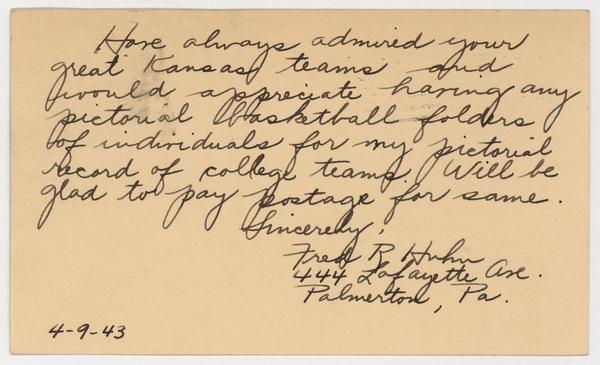 Have always admired your
great Kansas teams and
would appreciate having any
pictorial basketball folders
of individuals for my pictorial
record of college teams. Will be
glad to pay postage for same.
Sincerely,
Fred R Huhn
444 Lafayette Ave.
Palmerton, Pa.
4-9-43